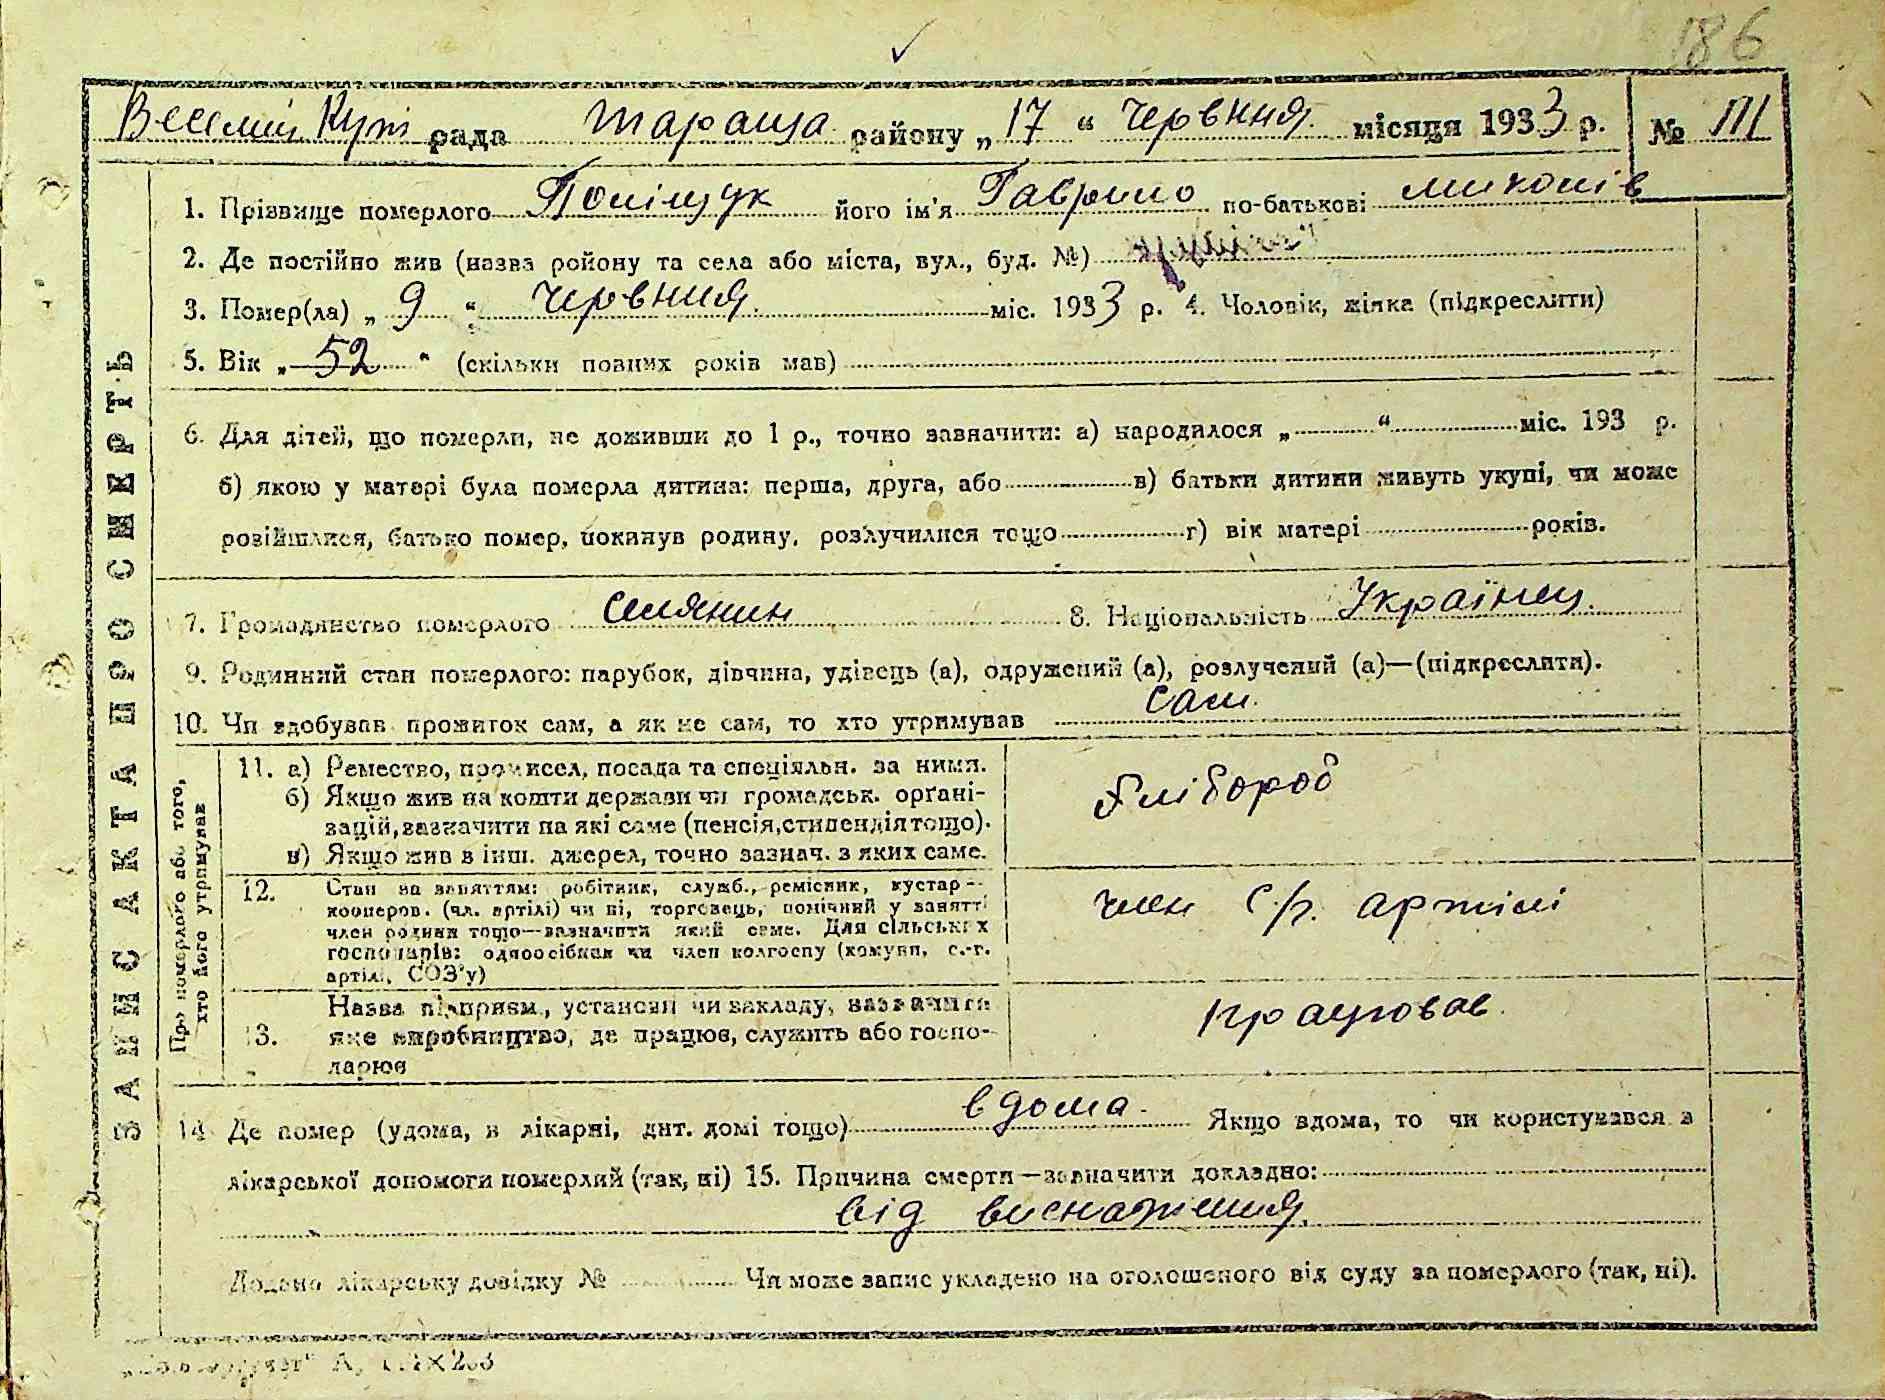 186
Веселий Кут рада Тараща району „ 17 “ Червння місяця 1933 р. № 111
1. Прізвище померлого Поліщук його ім'я Гаврило по-батькові миколів
2. Де постійно жив (назва ройону та села або міста, вул., буд. №)
3. Помер(ла) „ 9 “ червння міс. 1933 р. 4. Чоловік, жінка (підкреслити)
5. Вік „ 52 “ (скільки повних років мав)
6. Для дітей, що померли, не доживши до 1 р., точно зазначити: а) народилося „ “ міс. 193 р.
б) якою у матері була померла дитина: перша, друга, або в) батьки дитини живуть укупі, чи може
розійшлися, батько помер, покинув родину, розлучилися тощо г) вік матері років.
7. Громадянство померлого селянин 8. Національність Українец
9. Родинний стан померлого: парубок, дівчина, удівець (а), одружений (а), розлучений (а)—(підкреслити).
10. Чи здобував прожиток сам, а як не сам, то хто утримував сам
ЗАПИС АКТА ПРО СМЕРТЬ
Про померлого або того,
хто його утримував
11. а) Ремество, промисел, посада та спеціяльн. за ними.
б) Якщо жив на кошти держави чи громадськ. орґані-
зацій, зазначити на які саме (пенсія, стипендія тощо).
в) Якщо жив в інш. джерел, точно зазнач. з яких саме.
хлібороб
12. Стан за заняттям: робітник, служб., ремісник, кустар—
кооперов. (чл. артілі) чи ні, торговець, помічний у занятті
член родини тощо—зазначити який саме. Для сільських
господарів: одноосібник чи член колгоспу (комуни, с.-г.
артілі, СОЗ'у)
член с/г. артілі
13. Назва підприєм., установи чи закладу, зазначити
яке виробництво, де працює, служить або госпо-
дарює
працював
14 Де помер (удома, в лікарні, дит. домі тощо) вдома. Якщо вдома, то чи користувався з
лікарської допомоги померлий (так, ні) 15. Причина смерти—зазначити докладно:
від виснаження
Додано лікарську довідку № Чи може запис укладено на оголошеного від суду за померлого (так, ні).